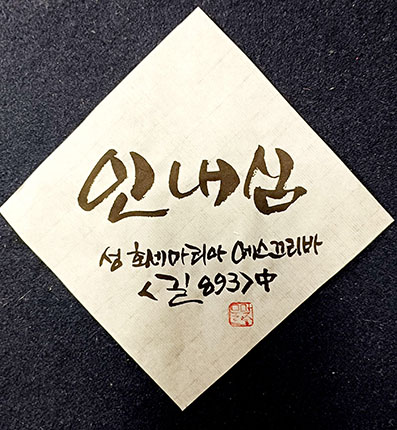 인내심
성 호세마리아 에스끄리바
<길 893>中